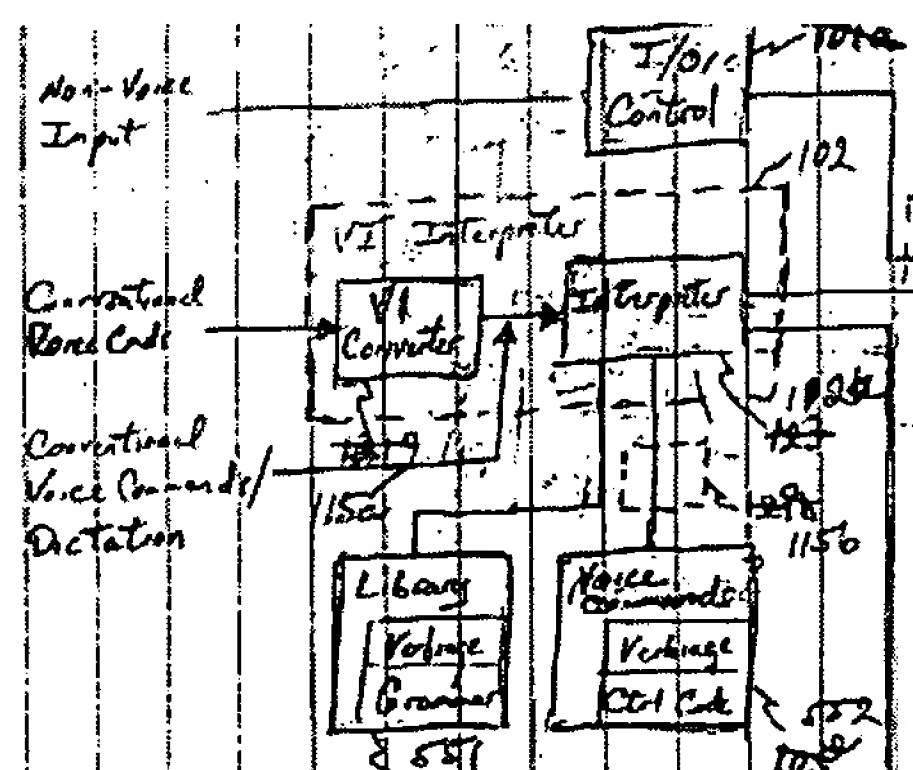 Non-Voice
Input
I/O
Control
102
VI Interpreter
Conventional
VI
Converter
Interpreter
Conventional
Voice Commands/
Dictation
115a
115b
Library
Verbiage
Grammar
Voice
Commands
Verbiage
Ctrl Code
551
552